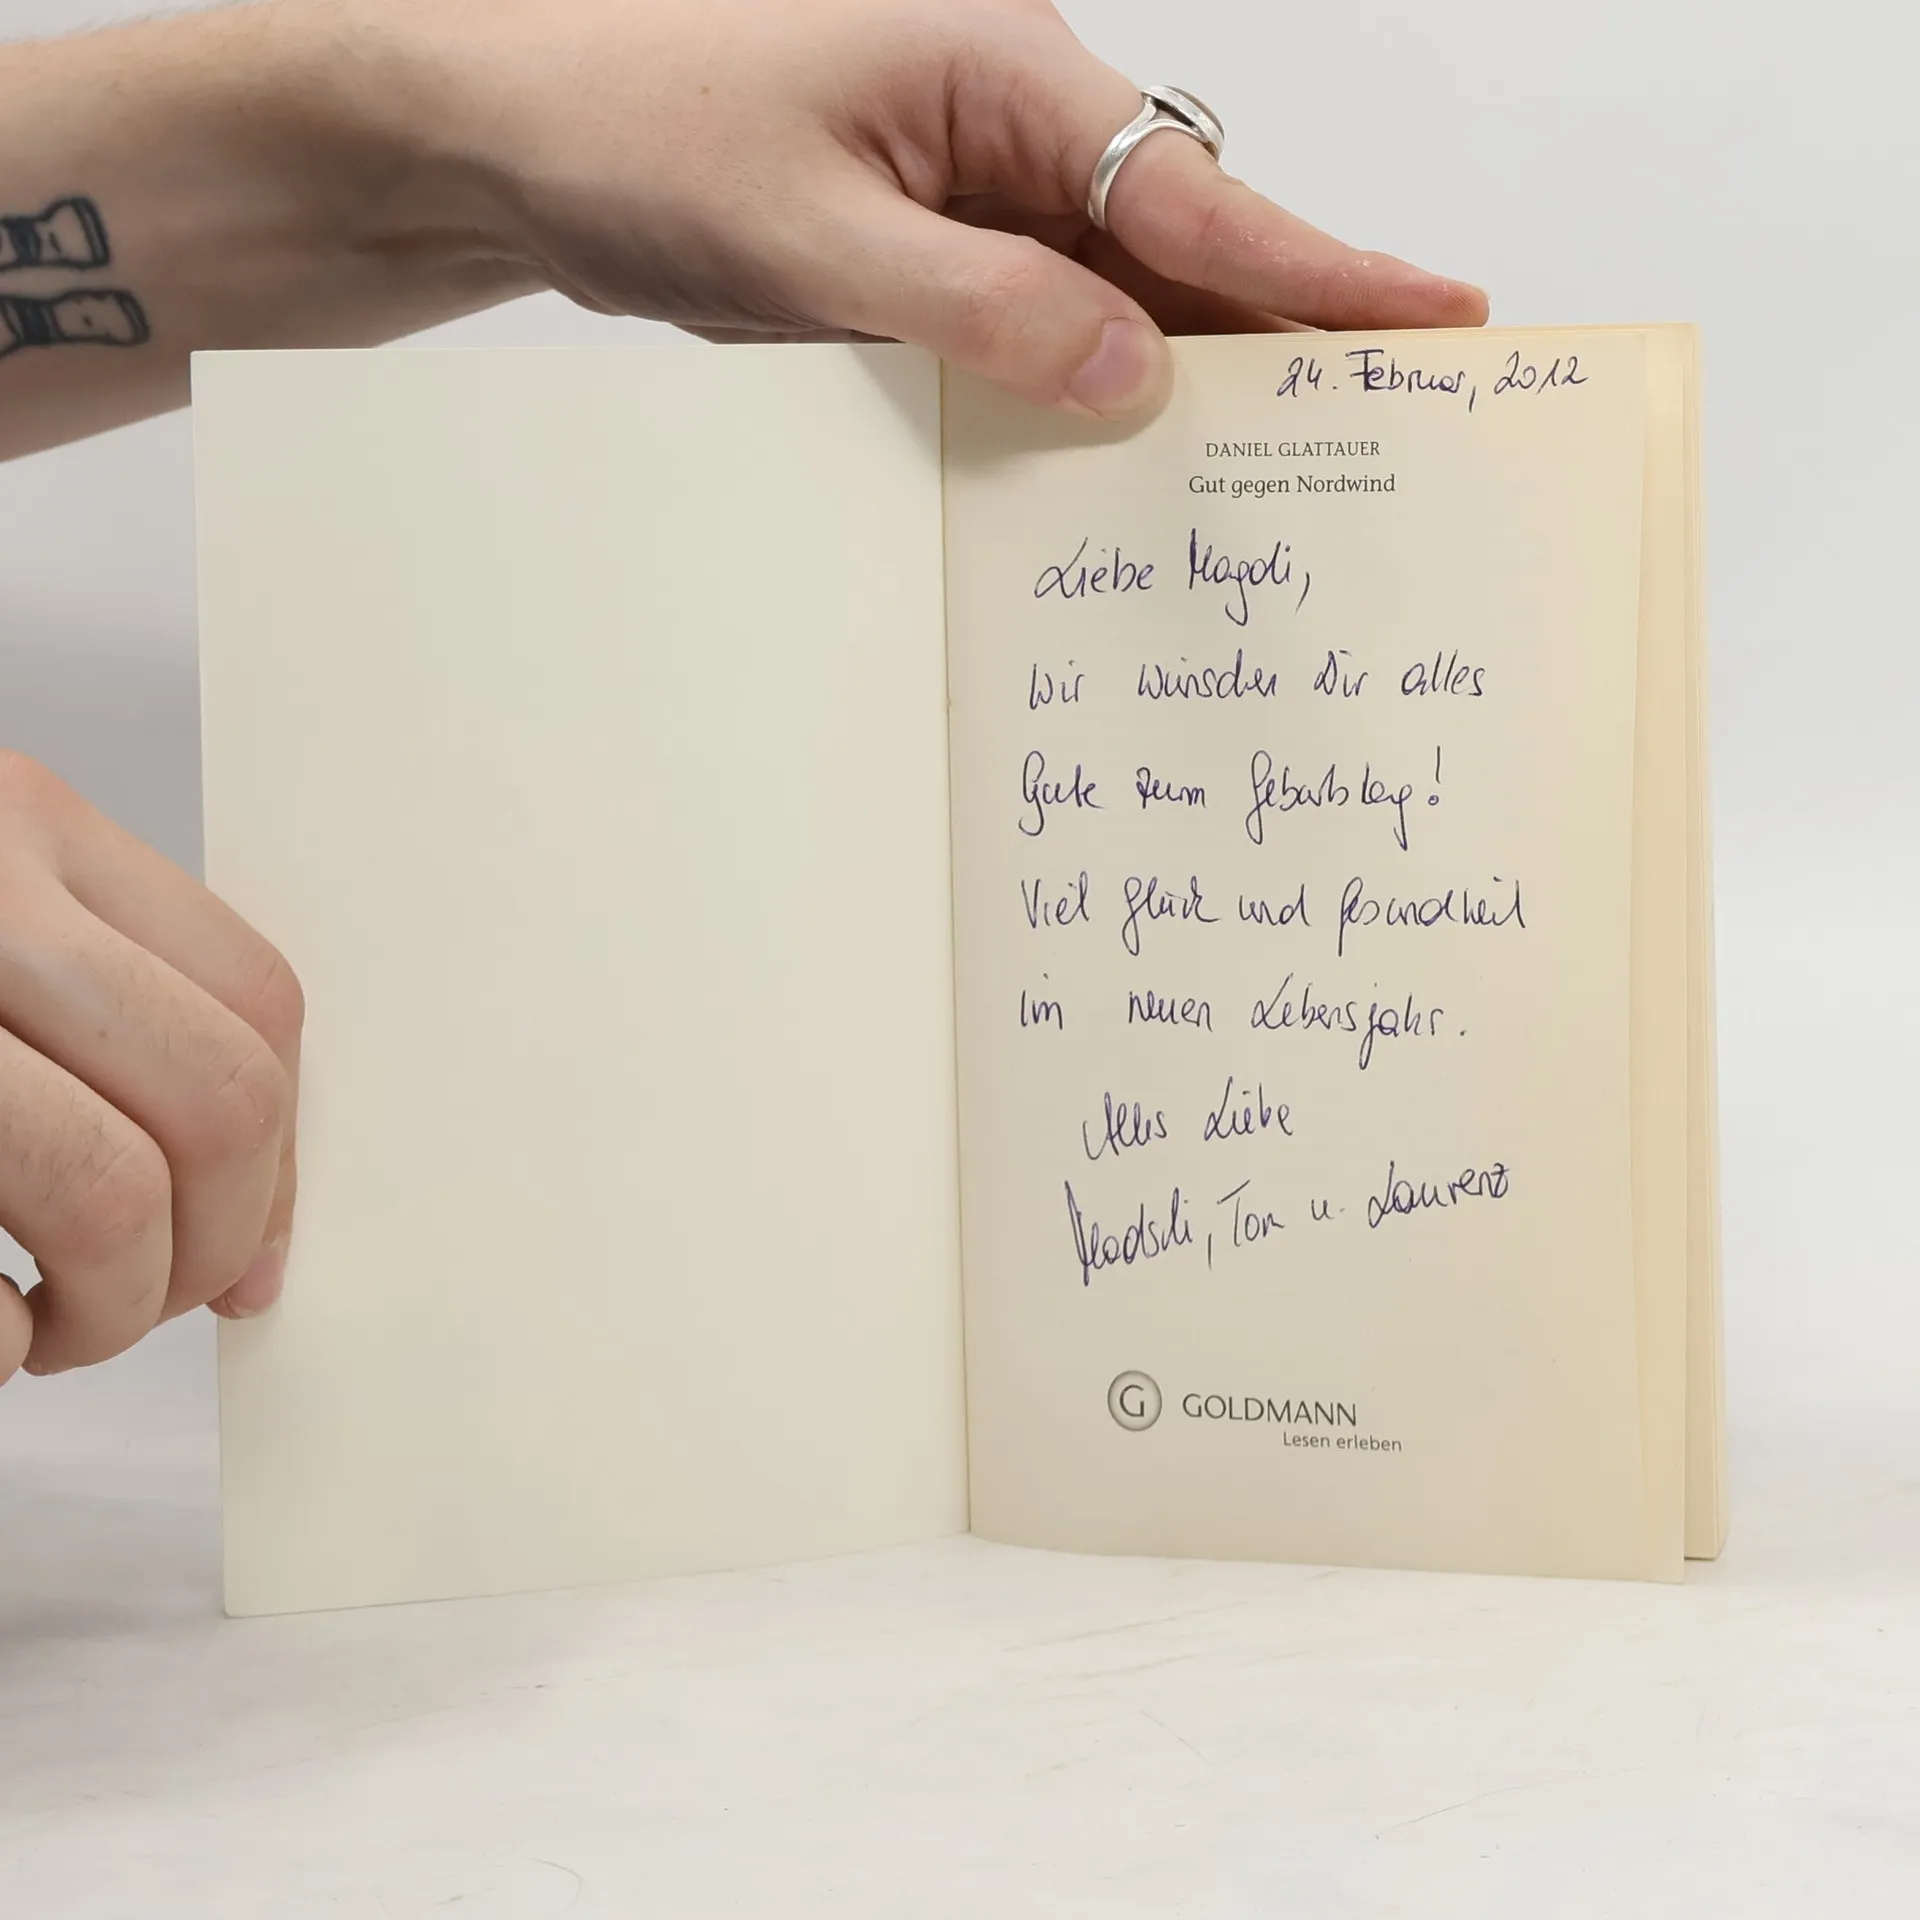 24. Februar, 2012
DANIEL GLATTAUER
Gut gegen Nordwind
Liebe Magdi,
Wir wünschen Dir alles
Gute zum Geburtstag!
Viel Glück und Gesundheit
im neuen Lebensjahr.
Alles Liebe
Tom u. Laurenz
G GOLDMANN
Lesen erleben